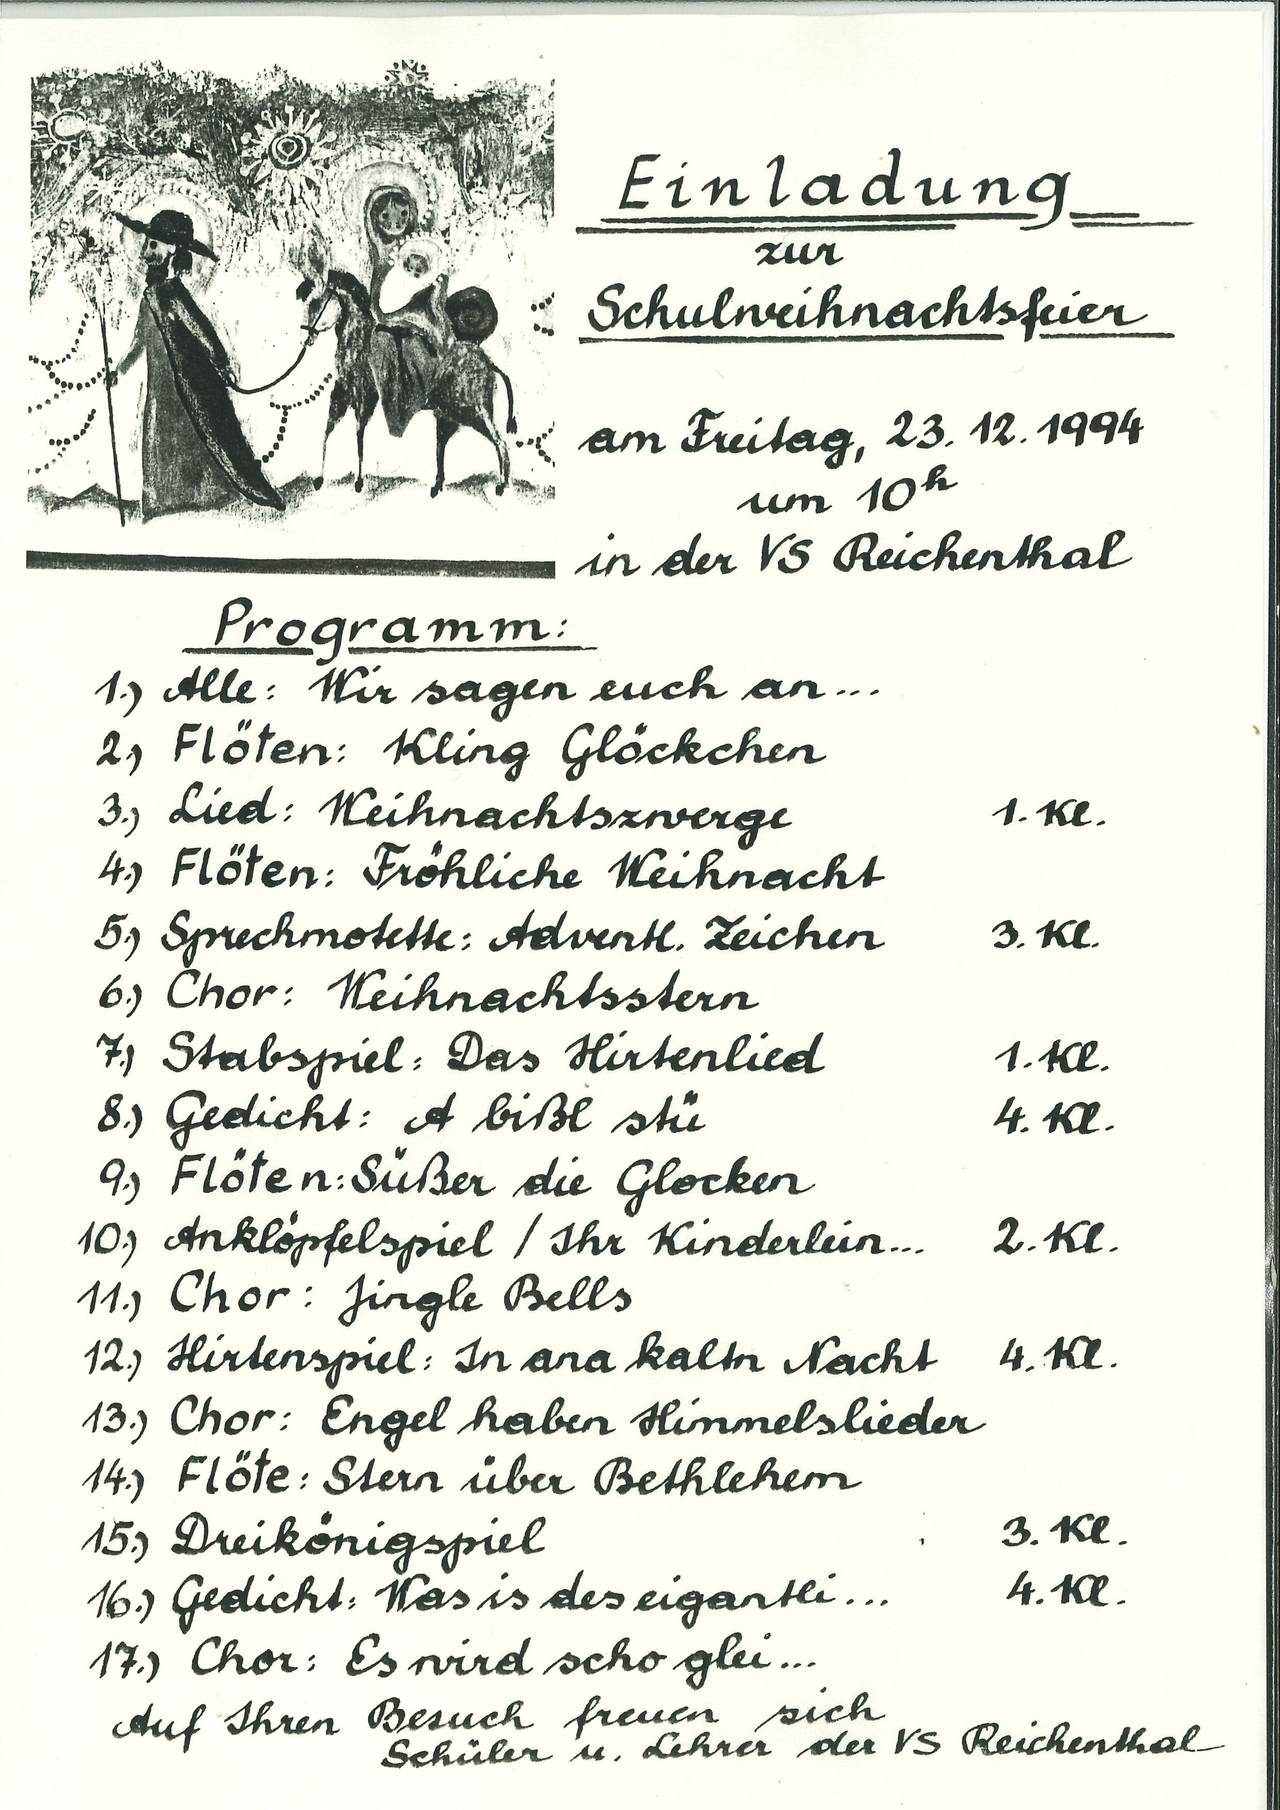 Einladung
zur
Schulweihnachtsfeier
am Freitag, 23.12.1994
um 10h
in der VS Reichenthal
Programm:
1.) Alle: Wir sagen euch an...
2.) Flöten: Kling Glöckchen
3.) Lied: Weihnachtszwerge 1. Kl.
4.) Flöten: Fröhliche Weihnacht
5.) Sprechmotette: Adventl. Zeichen 3. Kl.
6.) Chor: Weihnachtsstern
7.) Stabspiel: Das Hirtenlied 1. Kl.
8.) Gedicht: A bißl stü 4. Kl.
9.) Flöten: Süßer die Glocken
10.) Anklöpfelspiel / Ihr Kinderlein... 2. Kl.
11.) Chor: Jingle Bells
12.) Hirtenspiel: In ana kaltn Nacht 4. Kl.
13.) Chor: Engel haben Himmelslieder
14.) Flöte: Stern über Bethlehem
15.) Dreikönigspiel 3. Kl.
16.) Gedicht: Was is des eigantli... 4. Kl.
17.) Chor: Es wird scho glei...
Auf Ihren Besuch freuen sich
Schüler u. Lehrer der VS Reichenthal